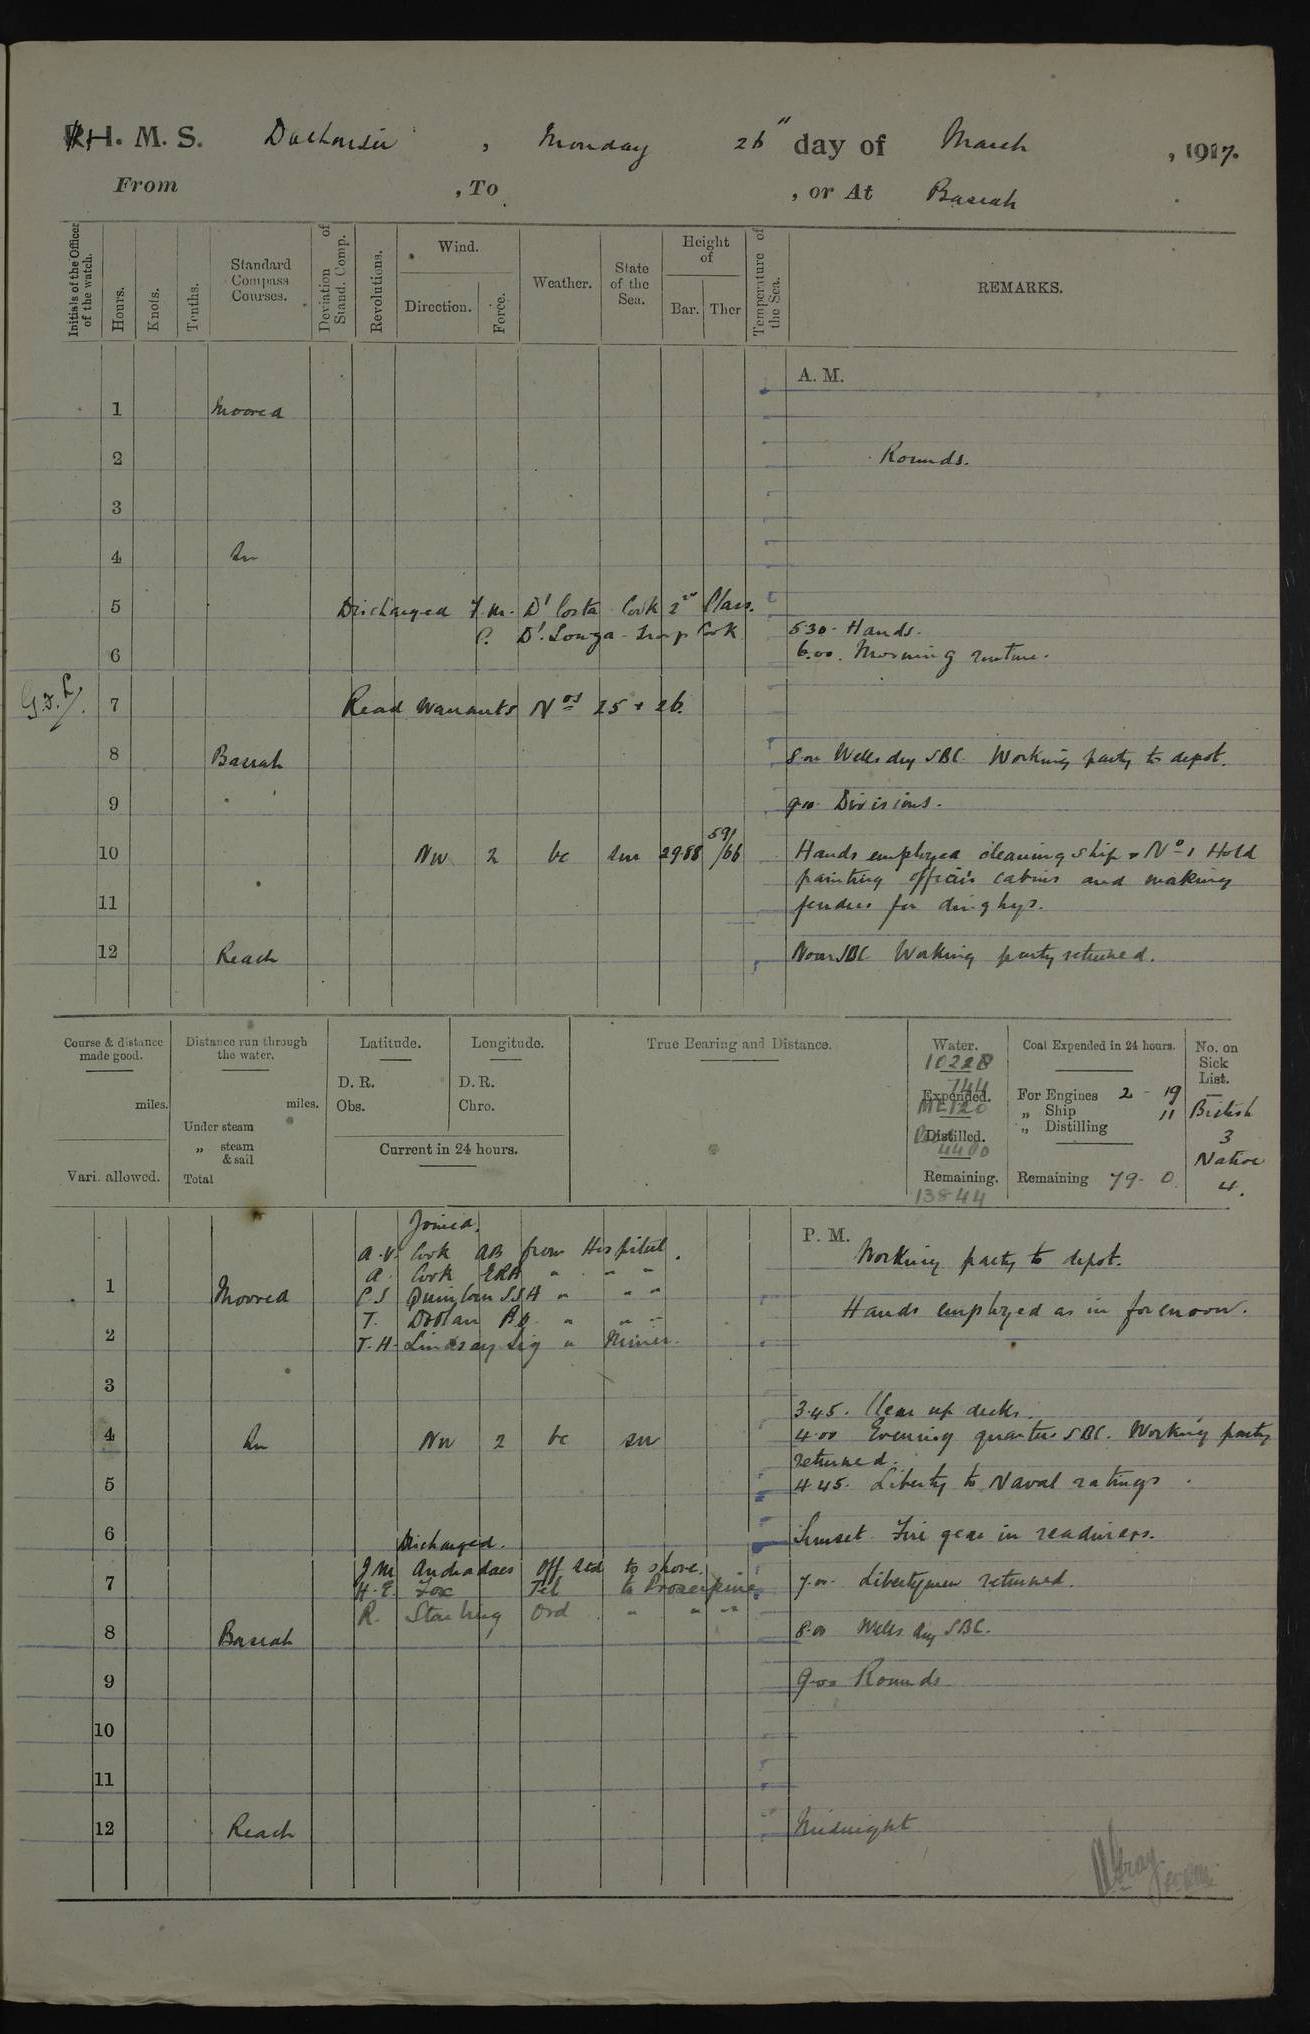 H. M. S. Dalhousie, Monday 26th day of March, 1917.
From , To , or At Basrah
Initials of the Officer of the watch.
Hours.
Knots.
Tenths.
Standard Compass Courses.
Deviation of Stand. Comp.
Revolutions.
Wind.
Direction.
Force.
Weather.
State of the Sea.
Height of
Bar.
Ther
Temperature of the Sea.
REMARKS.
A. M.
1 Moored
2 Rounds.
3
4 In
5 Discharged F.M. D'Costa Cook 2nd Class.
P. D'Souza - Troop Cook
5.30 - Hands.
6 6.00. Morning routine.
7 Read Warrants Nos 25 + 26.
8 Basrah 8.00 Wells dry SBC. Working party to depot.
9 9.00. Divisions.
10 NW 2 bc sm 29.88 59/66 Hands employed cleaning ship + No 1 Hold
painting officers cabins and making
11 fenders for dinghys.
12 Reach Noon SBC Working party returned.
Course & distance made good.
miles.
Vari. allowed.
Distance run through the water.
miles.
Under steam
„ steam & sail
Total
Latitude.
D. R.
Obs.
Longitude.
D. R.
Chro.
Current in 24 hours.
True Bearing and Distance.
Water.
10228
Expended.
744
Distilled.
4400
Remaining.
13844
Coal Expended in 24 hours.
For Engines 2 - 19
„ Ship 11
„ Distilling
Remaining 79 - 0
No. on Sick List.
British
3
Native
4.
P. M.
Joined.
Working party to depot.
A.V. Cook AB from Hospital.
A. Cook ERA " " "
1 Moored
C S Quinlan SSA " " "
Hands employed as in forenoon.
T. Dolan AB. " " "
2 T. H. Lindsay Sig " Miner.
3
3.45. Clear up decks.
4 In NW 2 bc sm 4.00 Evening quarters SBC. Working party
returned.
5 4.45. Liberty to Naval ratings.
6 Sunset Fire gear in readiness.
Discharged.
J M Andradaes Off Std to shore.
7 H. E. Fox Tel to Proserpine
7.00. Libertymen returned.
R. Starling Ord " " "
8 Basrah 8.00 Wells dry SBC.
9 9.00 Rounds
10
11
12 Reach Midnight